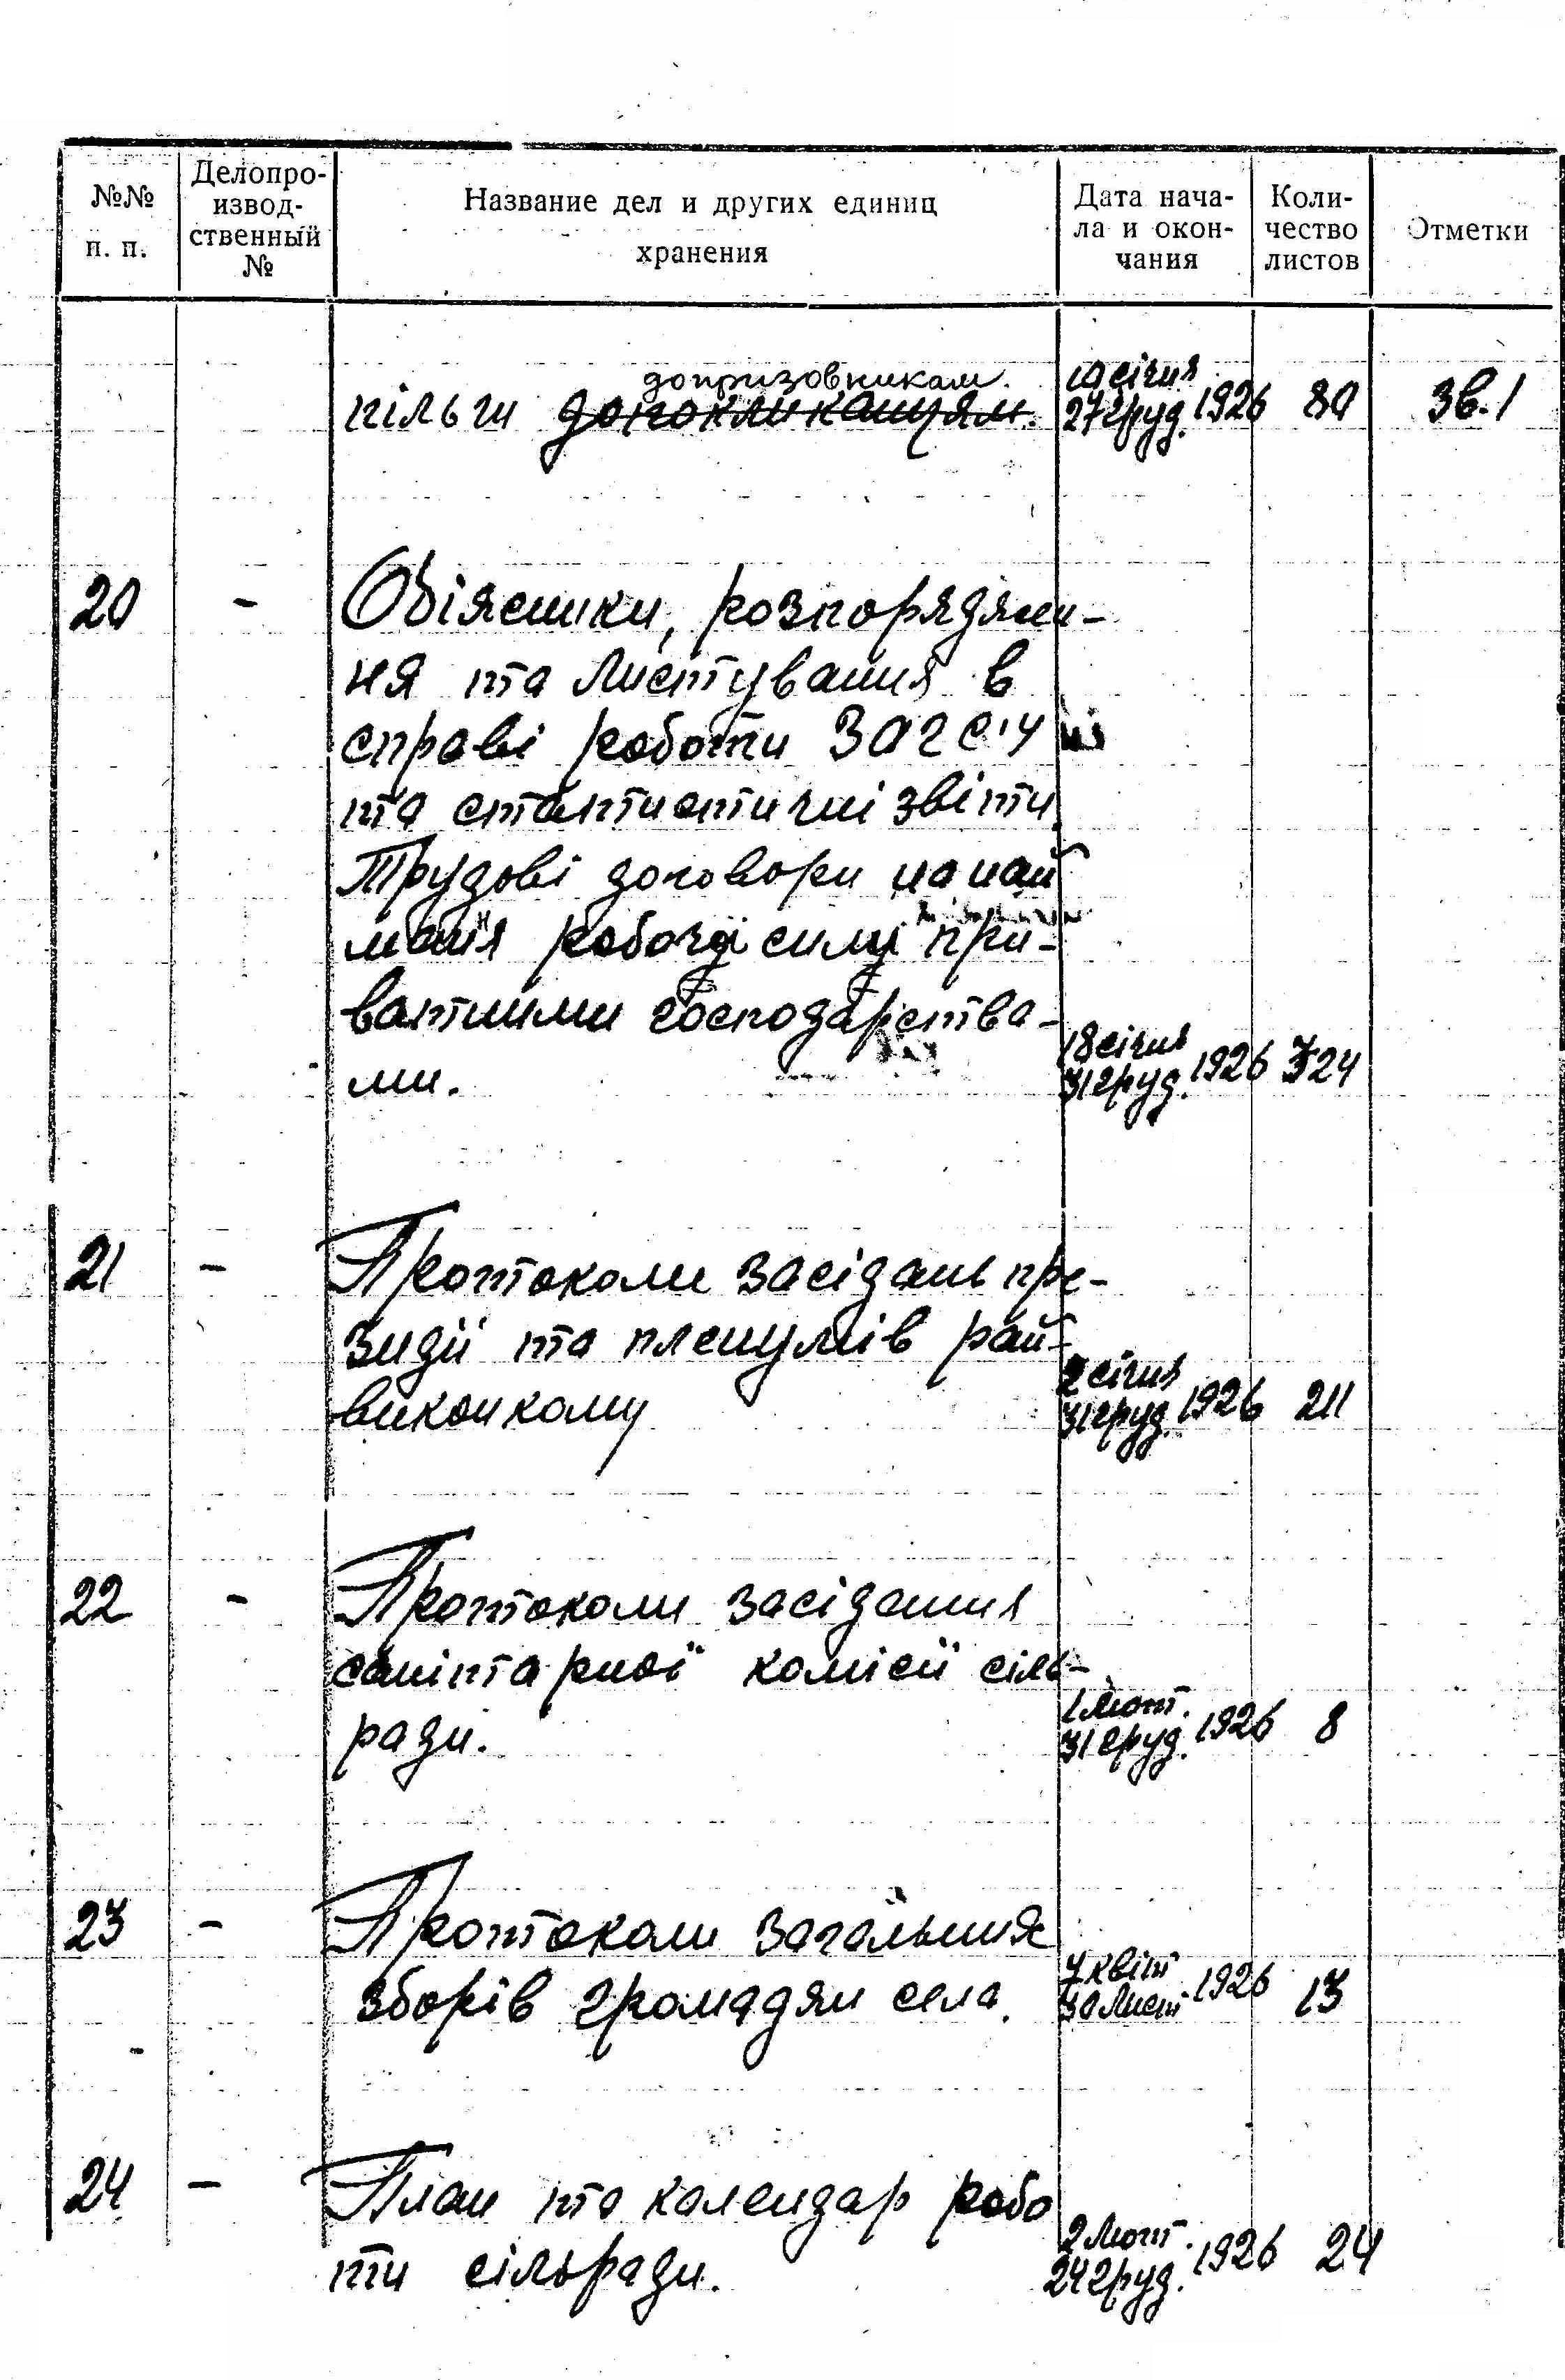 №№ п. п.
Делопро-
извод-
ственный
№
Название дел и других единиц
хранения
Дата нача-
ла и окон-
чания
Коли-
чество
листов
Отметки
допризовникам.
пільги
10 січня
27 груд. 1926 80 Зв. 1
20 - Обіясники, розпоряджен-
ня та листування в
справі роботи ЗАГС'у
та статистичні звіти.
Трудові договори на най
мання робочу силу при-
ватними господарства-
ми.
18 січня
31 груд. 1926 324
21 - Протоколи засідань пре-
зидії та пленумів рай-
виконкому
2 січня
31 груд. 1926 211
22 - Протоколи засідання
санітарної комісії сіль-
ради.
1 лют.
31 груд. 1926 8
23 - Протоколи загальних
зборів громадян села.
7 квіт
30 лист 1926 13
24 - План та календар робо
ти сільради.
2 лют.
24 груд. 1926 24